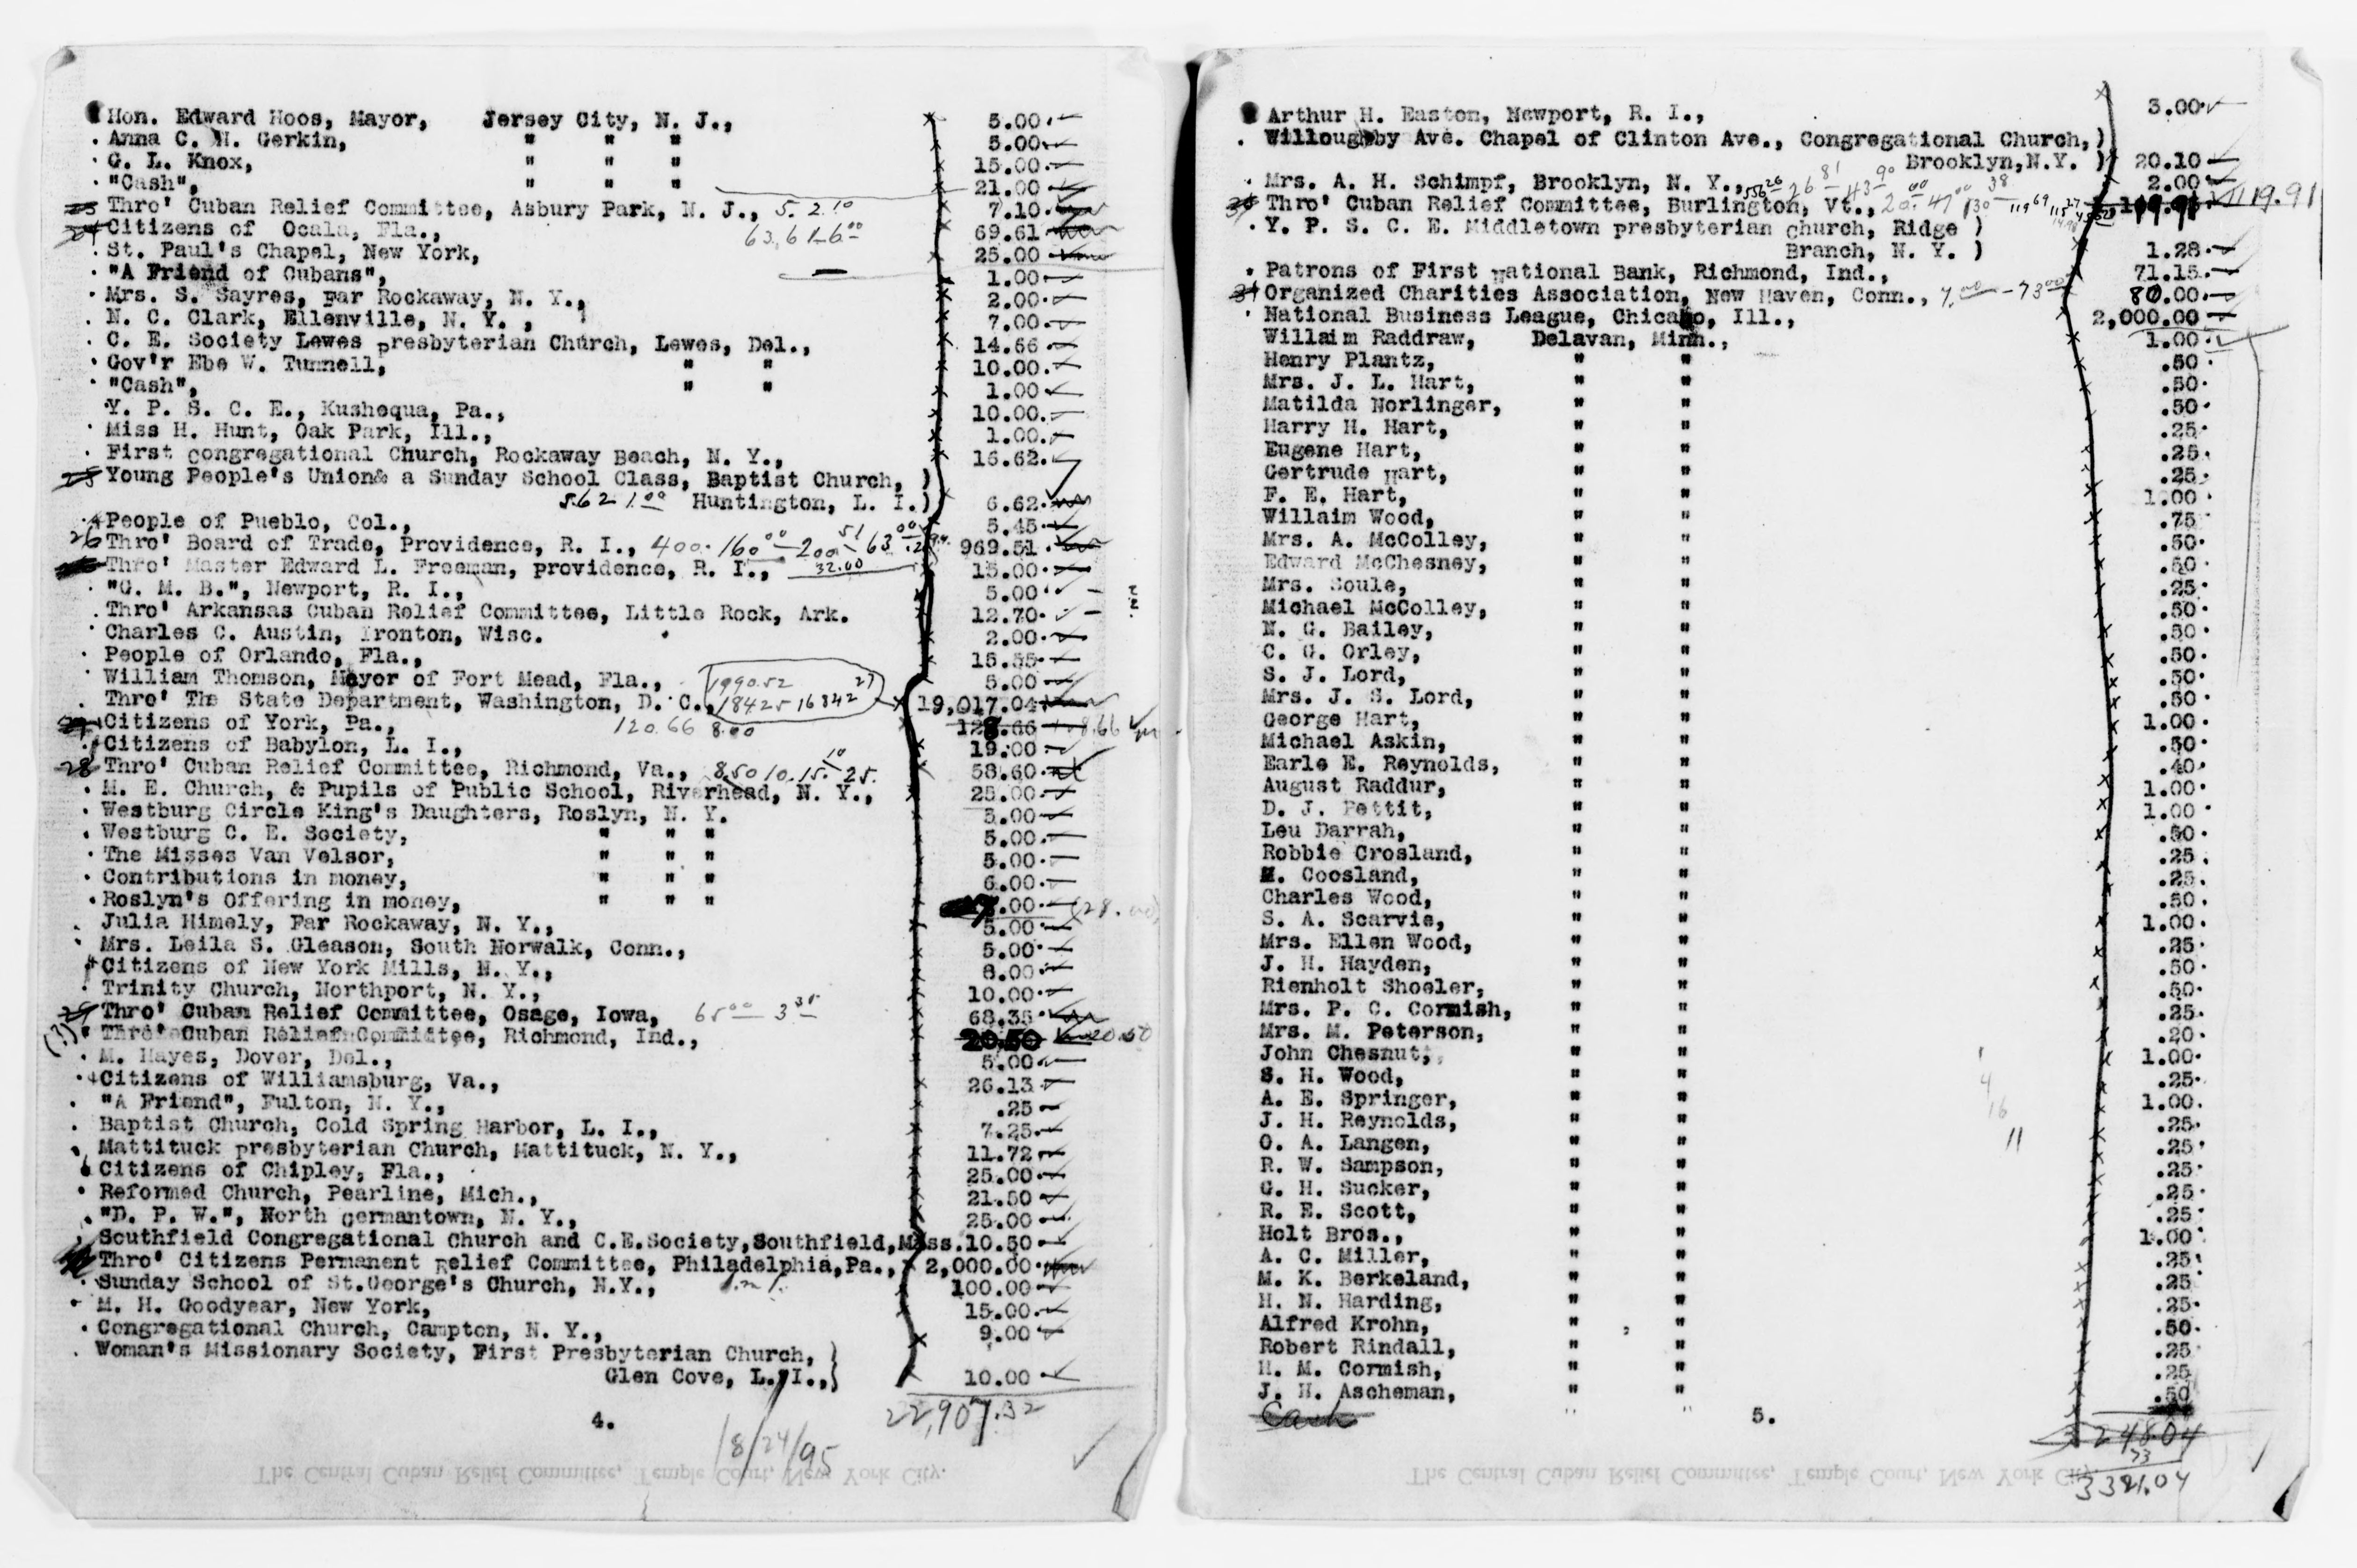 Hon. Edward Hoos, Mayor, Jersey City, N. J., 5.00
Anna C. H. Gerkin, " " " 5.00
G. L. Knox, " " " 15.00
"Cash", " " " 21.00
Thro' Cuban Relief Committee, Asbury Park, N. J., 5. 2.10 7.10
Citizens of Ocala, Fla., 63.61 6.00 69.61
St. Paul's Chapel, New York, 25.00
"A Friend of Cubans", 1.00
Mrs. S. Sayres, Far Rockaway, N. Y., 2.00
N. C. Clark, Ellenville, N. Y., 7.00
C. E. Society Lewes Presbyterian Church, Lewes, Del., 14.66
Gov'r Ebe W. Tunnell, " " 10.00
"Cash", " " 1.00
Y. P. S. C. E., Kushequa, Pa., 10.00
Miss H. Hunt, Oak Park, Ill., 1.00
First Congregational Church, Rockaway Beach, N. Y., 16.62
25 Young People's Union& a Sunday School Class, Baptist Church, )
5.62 1.00 Huntington, L. I.) 6.62
People of Pueblo, Col., 5.45
26 Thro' Board of Trade, Providence, R. I., 400. 160.00 200 51 63.00 969.51
Thro' Master Edward L. Freeman, Providence, R. I., 32.00 15.00
"G. M. B.", Newport, R. I., 5.00
Thro' Arkansas Cuban Relief Committee, Little Rock, Ark. 12.70
Charles C. Austin, Ironton, Wisc. 2.00
People of Orlando, Fla., 15.55
William Thomson, Mayor of Fort Mead, Fla., 1990.52 5.00
Thro' The State Department, Washington, D. C., 18425 16842 27 19,017.04
Citizens of York, Pa., 120.66 8.00 128.66
Citizens of Babylon, L. I., 19.00
28 Thro' Cuban Relief Committee, Richmond, Va., 8.50 10.15.10 25. 58.60
M. E. Church, & Pupils of Public School, Riverhead, N. Y., 25.00
Westburg Circle King's Daughters, Roslyn, N. Y. 5.00
Westburg C. E. Society, " " " 5.00
The Misses Van Velsor, " " " 5.00
Contributions in money, " " " 6.00
Roslyn's Offering in money, " " " .00 (28.00)
Julia Himely, Far Rockaway, N. Y., 5.00
Mrs. Leila S. Gleason, South Norwalk, Conn., 5.00
Citizens of New York Mills, N. Y., 8.00
Trinity Church, Northport, N. Y., 10.00
29 Thro' Cuban Relief Committee, Osage, Iowa, 65.00 3.35 68.35
(?) Thro' Cuban Relief Committee, Richmond, Ind., 20.50 20.50
M. Hayes, Dover, Del., 5.00
Citizens of Williamsburg, Va., 26.13
"A Friend", Fulton, N. Y., .25
Baptist Church, Cold Spring Harbor, L. I., 7.25
Mattituck Presbyterian Church, Mattituck, N. Y., 11.72
Citizens of Chipley, Fla., 25.00
Reformed Church, Pearline, Mich., 21.50
"D. P. W.", North Germantown, N. Y., 25.00
Southfield Congregational Church and C.E.Society,Southfield,Mass. 10.50
Thro' Citizens Permanent Relief Committee, Philadelphia,Pa., 2,000.00
Sunday School of St.George's Church, N.Y., 100.00
M. H. Goodyear, New York, 15.00
Congregational Church, Campton, N. Y., 9.00
Woman's Missionary Society, First Presbyterian Church, )
Glen Cove, L. I.,) 10.00
4.
22,907.32
18/24/95
The Central Cuban Relief Committee, Temple Court, New York City.
Arthur H. Easton, Newport, R. I., 3.00
Willoughby Ave. Chapel of Clinton Ave., Congregational Church,)
Brooklyn,N.Y. ) 20.10
Mrs. A. H. Schimpf, Brooklyn, N. Y., 2.00
Thro' Cuban Relief Committee, Burlington, Vt., 119.91 119.91
Y. P. S. C. E. Middletown Presbyterian Church, Ridge )
Branch, N. Y. ) 1.28
Patrons of First National Bank, Richmond, Ind., 71.15
31 Organized Charities Association, New Haven, Conn., 7.00 - 73.00 80.00
National Business League, Chicago, Ill., 2,000.00
Willaim Raddraw, Delavan, Minn., 1.00
Henry Plantz, " " .50
Mrs. J. L. Hart, " " .50
Matilda Norlinger, " " .50
Harry H. Hart, " " .25
Eugene Hart, " " .25
Gertrude Hart, " " .25
F. E. Hart, " " 1.00
Willaim Wood, " " .75
Mrs. A. McColley, " " .50
Edward McChesney, " " .50
Mrs. Soule, " " .25
Michael McColley, " " .50
N. G. Bailey, " " .50
C. G. Orley, " " .50
S. J. Lord, " " .50
Mrs. J. S. Lord, " " .50
George Hart, " " 1.00
Michael Askin, " " .50
Earle E. Reynolds, " " .40
August Raddur, " " 1.00
D. J. Pettit, " " 1.00
Leu Darrah, " " .50
Robbie Crosland, " " .25
M. Coosland, " " .25
Charles Wood, " " .50
S. A. Scarvie, " " 1.00
Mrs. Ellen Wood, " " .25
J. H. Hayden, " " .50
Rienholt Shoeler, " " .50
Mrs. P. C. Cormish, " " .25
Mrs. M. Peterson, " " .20
John Chesnut, " " 1.00
S. H. Wood, " " .25
A. E. Springer, " " 1.00
J. H. Reynolds, " " .25
O. A. Langen, " " .25
R. W. Sampson, " " .25
G. H. Sucker, " " .25
R. E. Scott, " " .25
Holt Bros., " " 1.00
A. C. Miller, " " .25
M. K. Berkeland, " " .25
H. N. Harding, " " .25
Alfred Krohn, " " .50
Robert Rindall, " " .25
H. M. Cormish, " " .25
J. H. Ascheman, " " .50
Cash " " 5.
248.04
73
3321.04
The Central Cuban Relief Committee, Temple Court, New York City.